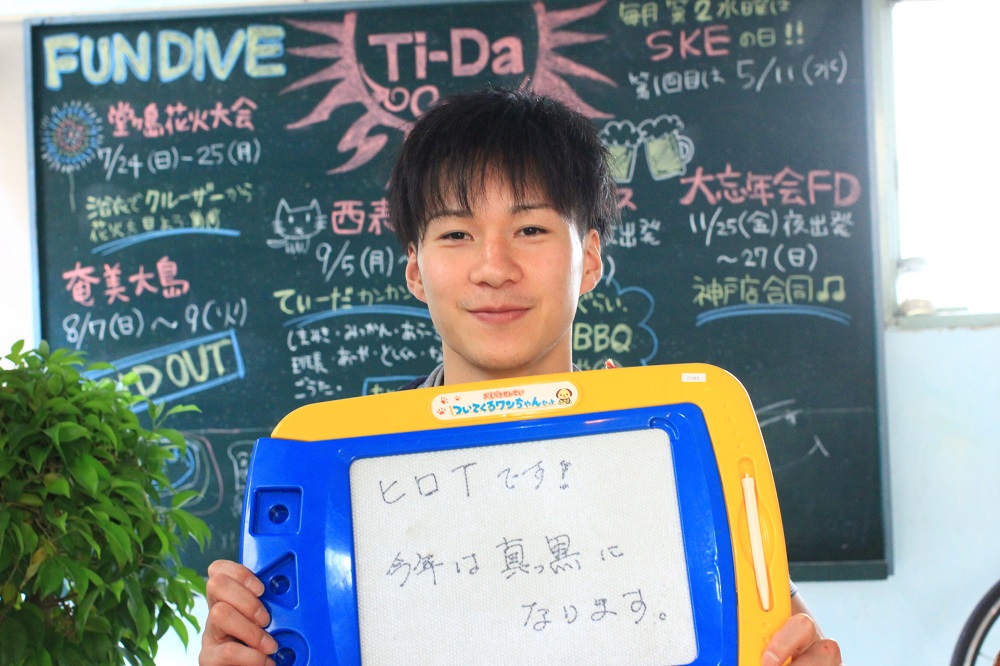 FUN DIVE
Ti-Da
毎月第2水曜は
SKEの日!!
第1回目は 5/11(水)
堂ヶ島花火大会
7/24(日)-25(月)
浴衣でクルーザーから
奄美大島
8/7(日)~9(火)
OUT
西表
9/5(月)~
てぃーだカンカン
しまぬき・みっかん・あっこ
ごうた。
BBQ
ス
夜出発
大忘年会FD
11/25(金)夜出発
~27(日)
神戸店合同♫
入
ついてくるワンちゃんセット
ヒロTです!
今年は真っ黒に
なります。